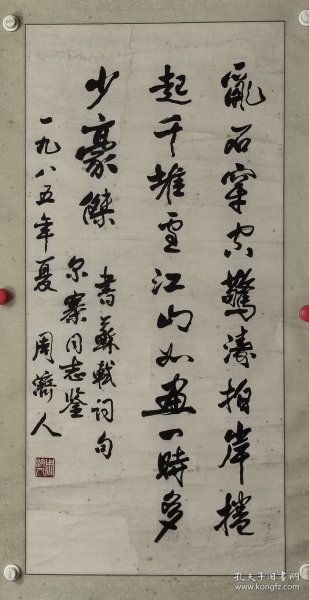 亂石穿空驚濤拍岸捲
起千堆雪江山如畫一時多
少豪傑
書蘇軾詞句
尔寨同志鉴
一九八五年夏 周濟人
孔夫子旧书网
www.kongfz.com